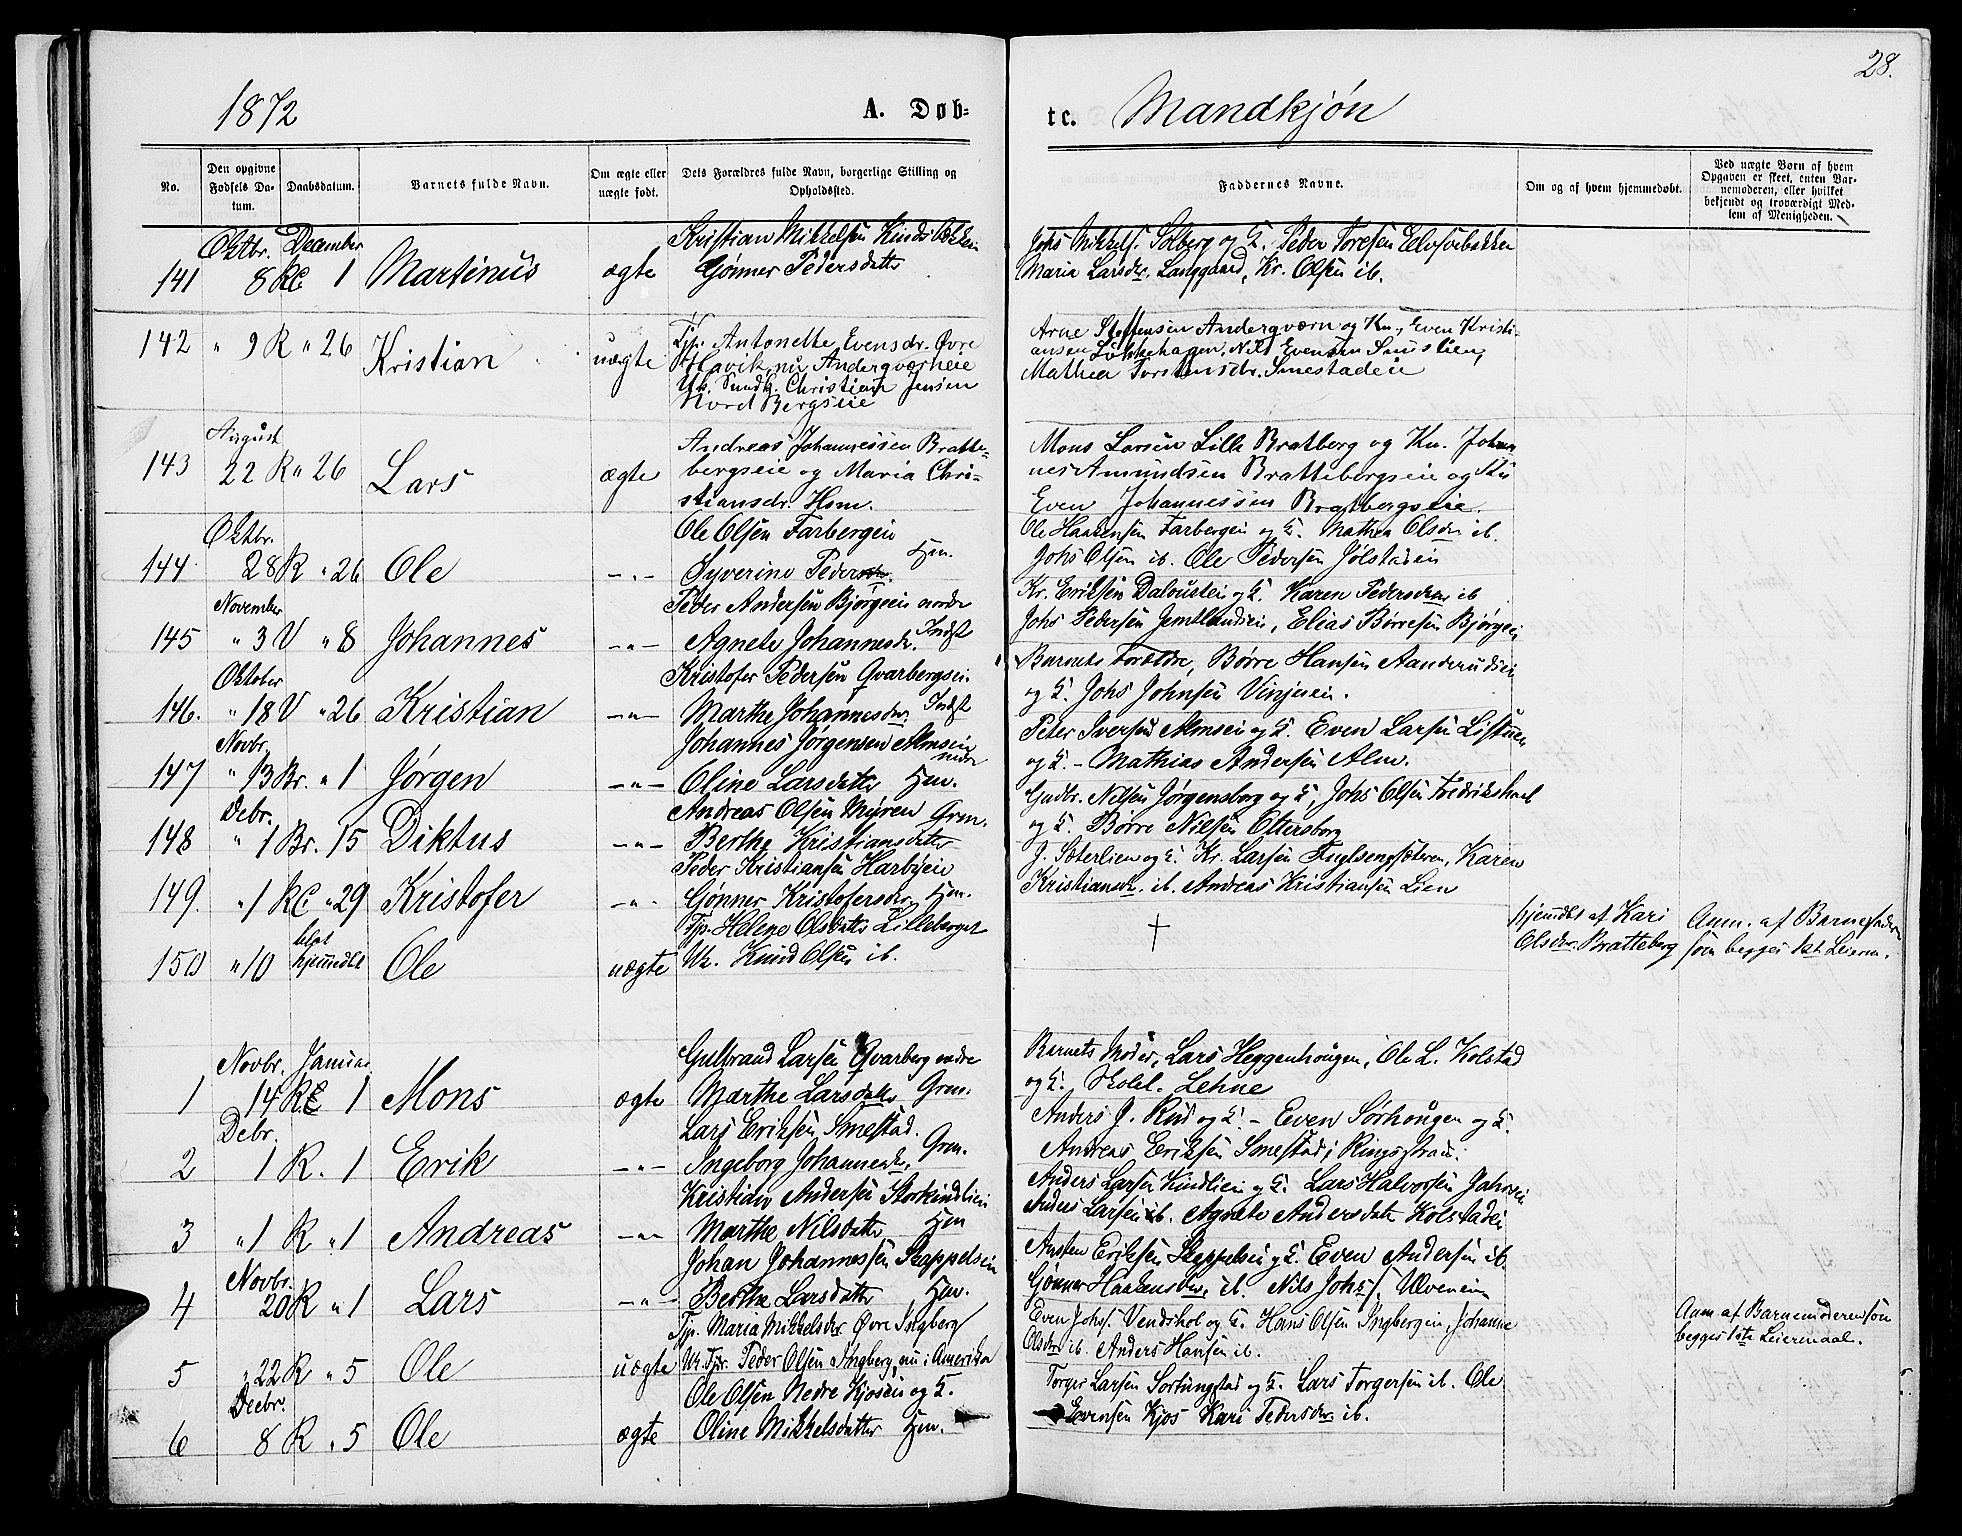 28.
1872
A. Døb-
te. Mandkjön
No.
Den opgivne Fødsels Datum.
Daabsdatum.
Barnets fulde Navn.
Om ægte eller uægte født.
Dets Forældres fulde Navn, borgerlige Stilling og Opholdssted.
Faddernes Navne.
Om og af hvem hjemmedøbt.
Ved uægte Børn af hvem Opgaven er skeet, enten Barnemoderen, eller hvilket bekjendt og troværdigt Medlem af Menigheden.
Oktbr. December
141 8 1 Martinus ægte
Kristian Mikkelsen
Gönner Pedersdatter
Johs Mikkels. Solberg og K. Peder Toresen
Maria Larsdr. Langgaard, Kr. Olsen ib.
142 " 9 R " 26 Kristian uægte
Antonette Evensdr. Øvre
Havik, nu Anderqværneie
Uk. Sundk. Christian Jensen
Nord Bergseie
Arne Steffensen Anderqværn og Kn, Even Kristi-
ansen Løkkehagen, Nils Evensen
Mathea Torstensdr. Smestadeie
August
143 22 R " 26 Lars ægte
Andreas Johannessen Bratte-
bergseie og Maria Chri-
stiansdr. Hsm.
Mons Larsen Lille Bratberg og Kn. Johan
nes Amundsen Brattebergseie og Kn
Even Johannessen Bratbergseie.
Oktbr.
144 28 R " 26 Ole -"-
Ole Olsen Farbergei
Syverine Pedersdr. Hm.
Ole Haakensen Farbergei og K. Mathea Olsdr ib.
Johs Olsen ib. Ole Pedersen Jølstadei
November
145 " 3 V " 8 Johannes -"-
Peder Andersen Bjørgeie nordre
Agnete Johannesdr. Indst
Kr. Eriksen og K. Karen Pedersdr ib
Johs Pedersen Elias Børresen Bjørgei
Oktober
146. " 18 V " 26 Kristian -"-
Kristofer Pedersen Qvarbergsei.
Marthe Johannesdr. Indst
Barnets Forældre, Børre Hansen Aanderudei
og K. Johs Johnsen Vinjuei.
Novbr.
147 " 13 Br. " 1 Jørgen -"-
Johannes Jørgensen Almsei nedre
Oline Larsdatter Hm.
Peter Iversen Almsei og K. Even Larsen Listuen
og K. - Mathias Andersen Alm.
Debr.
148 " 1 Br. 15 Diktus -"-
Andreas Olsen Myren Grm.
Berthe Kristiansdatter
Gudbr. Nilsen Jørgensborg og K, Johs Olsen
og K. Børre Nilsen Ottersborg
149. " 1 " 29 Kristofer -"-
Peder Kristiansen Harbyeie
Gönner Kristofersdr. Hm.
J. Sæterlien og K. Kr. Larsen Fuglsengsæteren, Karen
Kristiansdr. ib. Andreas Kristiansen Lien
150 " 10 hjemdbt Ole uægte
Pp. Helene Olsdatter Lilleberget
Uk. Knud Olsen ib.
†
hjemdbt af Kari
Olsdr. Bratteberg
Anm. af Barnefaderen
som begges 1ste Leierm.
Novbr. Januar
1 14 1 Mons ægte
Gulbrand Larsen Qvarberg nedre
Marthe Larsdatter Grm.
Barnets Moder, Lars Heggenhougen, Ole L. Kolstad
og K. Lehne
Debr.
2 1 R. 1 Erik -"-
Lars Eriksen Smestad.
Ingeborg Johannesdr. Grm.
Anders J. Rud og K. - Even Sørhougen og K.
Andreas Eriksen Smestad, Ringstrand.
3 " 1 R " 1 Andreas -"-
Kristian Andersen Storkindliei
Marthe Nilsdatter Hm
Anders Larsen Kindliei og K. Lars Halvorsen
Anders Larsen ib. Agnete Andersdatter Kolstadei
Novbr.
4 20 R " 1 Lars -"-
Johan Johannessen Skappelsei
Berthe Larsdatter Hm.
Austen Eriksen Skappelsei og K. Even Andersen ib.
Gönner Haakensdr. ib. Nils Johs. Ulvenei
5 " 22 R " 5 Ole uægte
Pp. Maria Mikkelsdr Øvre Ingberg
Uk. Peder Olsen Ingberg, nu i Amerika
Even Johs. Vendshol og K. Hans Olsen Ingbergei, Johanne
Olsdr ib. Anders Hansen ib.
Anm af Barnemoderen som
begges 1ste Leiermaal.
Decbr.
6 8 R " 5 Ole ægte
Ole Olsen Nedre Kjosei og K.
Oline Mikkelsdatter Hm.
Torger Larsen Sortungstad og K. Lars Torgersen ib. Ole
Evensen Kjos Kari Pedersdr ib.